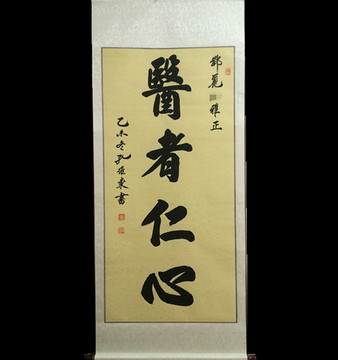 鄧麗 雅正
醫者仁心
乙未冬孔維東書